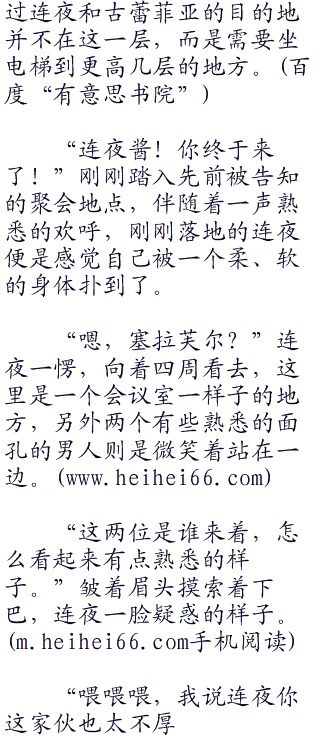 过连夜和古蕾菲亚的目的地
并不在这一层，而是需要坐
电梯到更高几层的地方。(百
度“有意思书院”)
“连夜酱！你终于来
了！”刚刚踏入先前被告知
的聚会地点，伴随着一声熟
悉的欢呼，刚刚落地的连夜
便是感觉自己被一个柔、软
的身体扑到了。
“嗯，塞拉芙尔？”连
夜一愣，向着四周看去，这
里是一个会议室一样子的地
方，另外两个有些熟悉的面
孔的男人则是微笑着站在一
边。(www.heihei66.com)
“这两位是谁来着，怎
么看起来有点熟悉的样
子。”皱着眉头摸索着下
巴，连夜一脸疑惑的样子。
(m.heihei66.com手机阅读)
“喂喂喂，我说连夜你
这家伙也太不厚